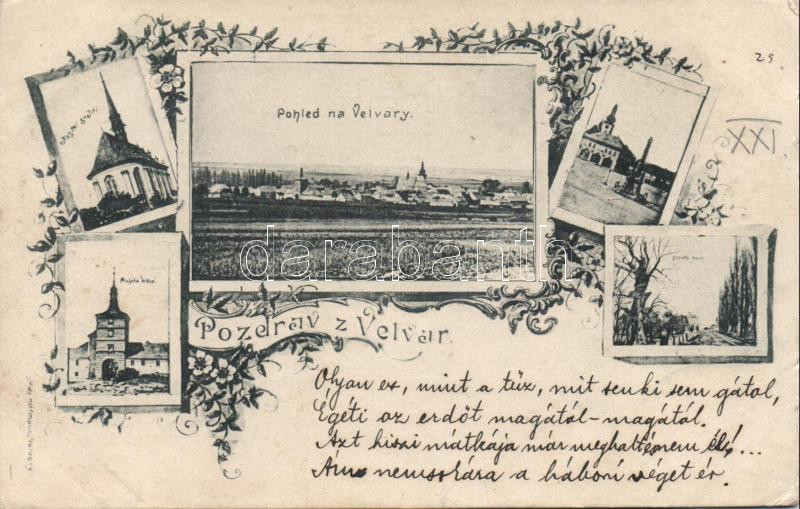 29
XXI
Pohled na Velvary.
Pražská brána
darabanth.com
Pozdrav z Velvar.
Olyan ez, mint a tűz, mit senki sem gátol,
Égeti az erdőt magától-magától.
Azt hiszi mátkája már meghalt, nem él!...
Ám nemsokára a háború véget ér.